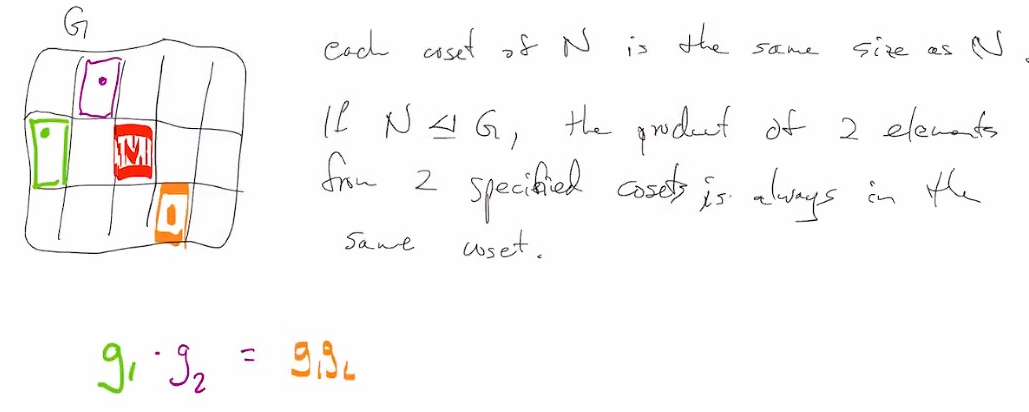 G
each coset of N is the same size as N.
If N ⊴ G, the product of 2 elements
from 2 specified cosets is always in the
same coset.
N
g₁ · g₂ = g₁g₂